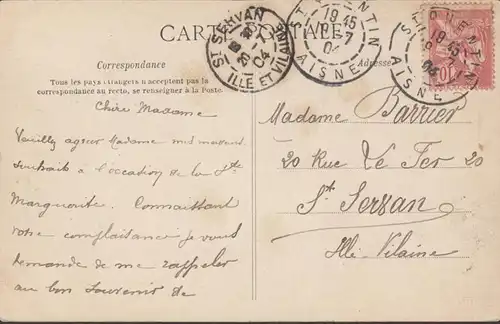 CARTE POSTALE
Correspondance
Tous les pays étrangers n'acceptent pas la
correspondance au recto, se renseigner à la Poste.
Adresse
ST SERVAN
20 -7 04
ILLE ET VILAINE
ST QUENTIN
19 45
-7
04
AISNE
ST QUENTIN
19 45
-7
04
AISNE
10
Chère Madame
Veuillez agréer Madame mes
souhaits à l'occasion de la Ste
Marguerite. Connaissant
votre complaisance je vous
demande de me rappeler
au bon souvenir de
Madame Barrier
20 Rue Le Fer 20
St Servan
Ille Vilaine